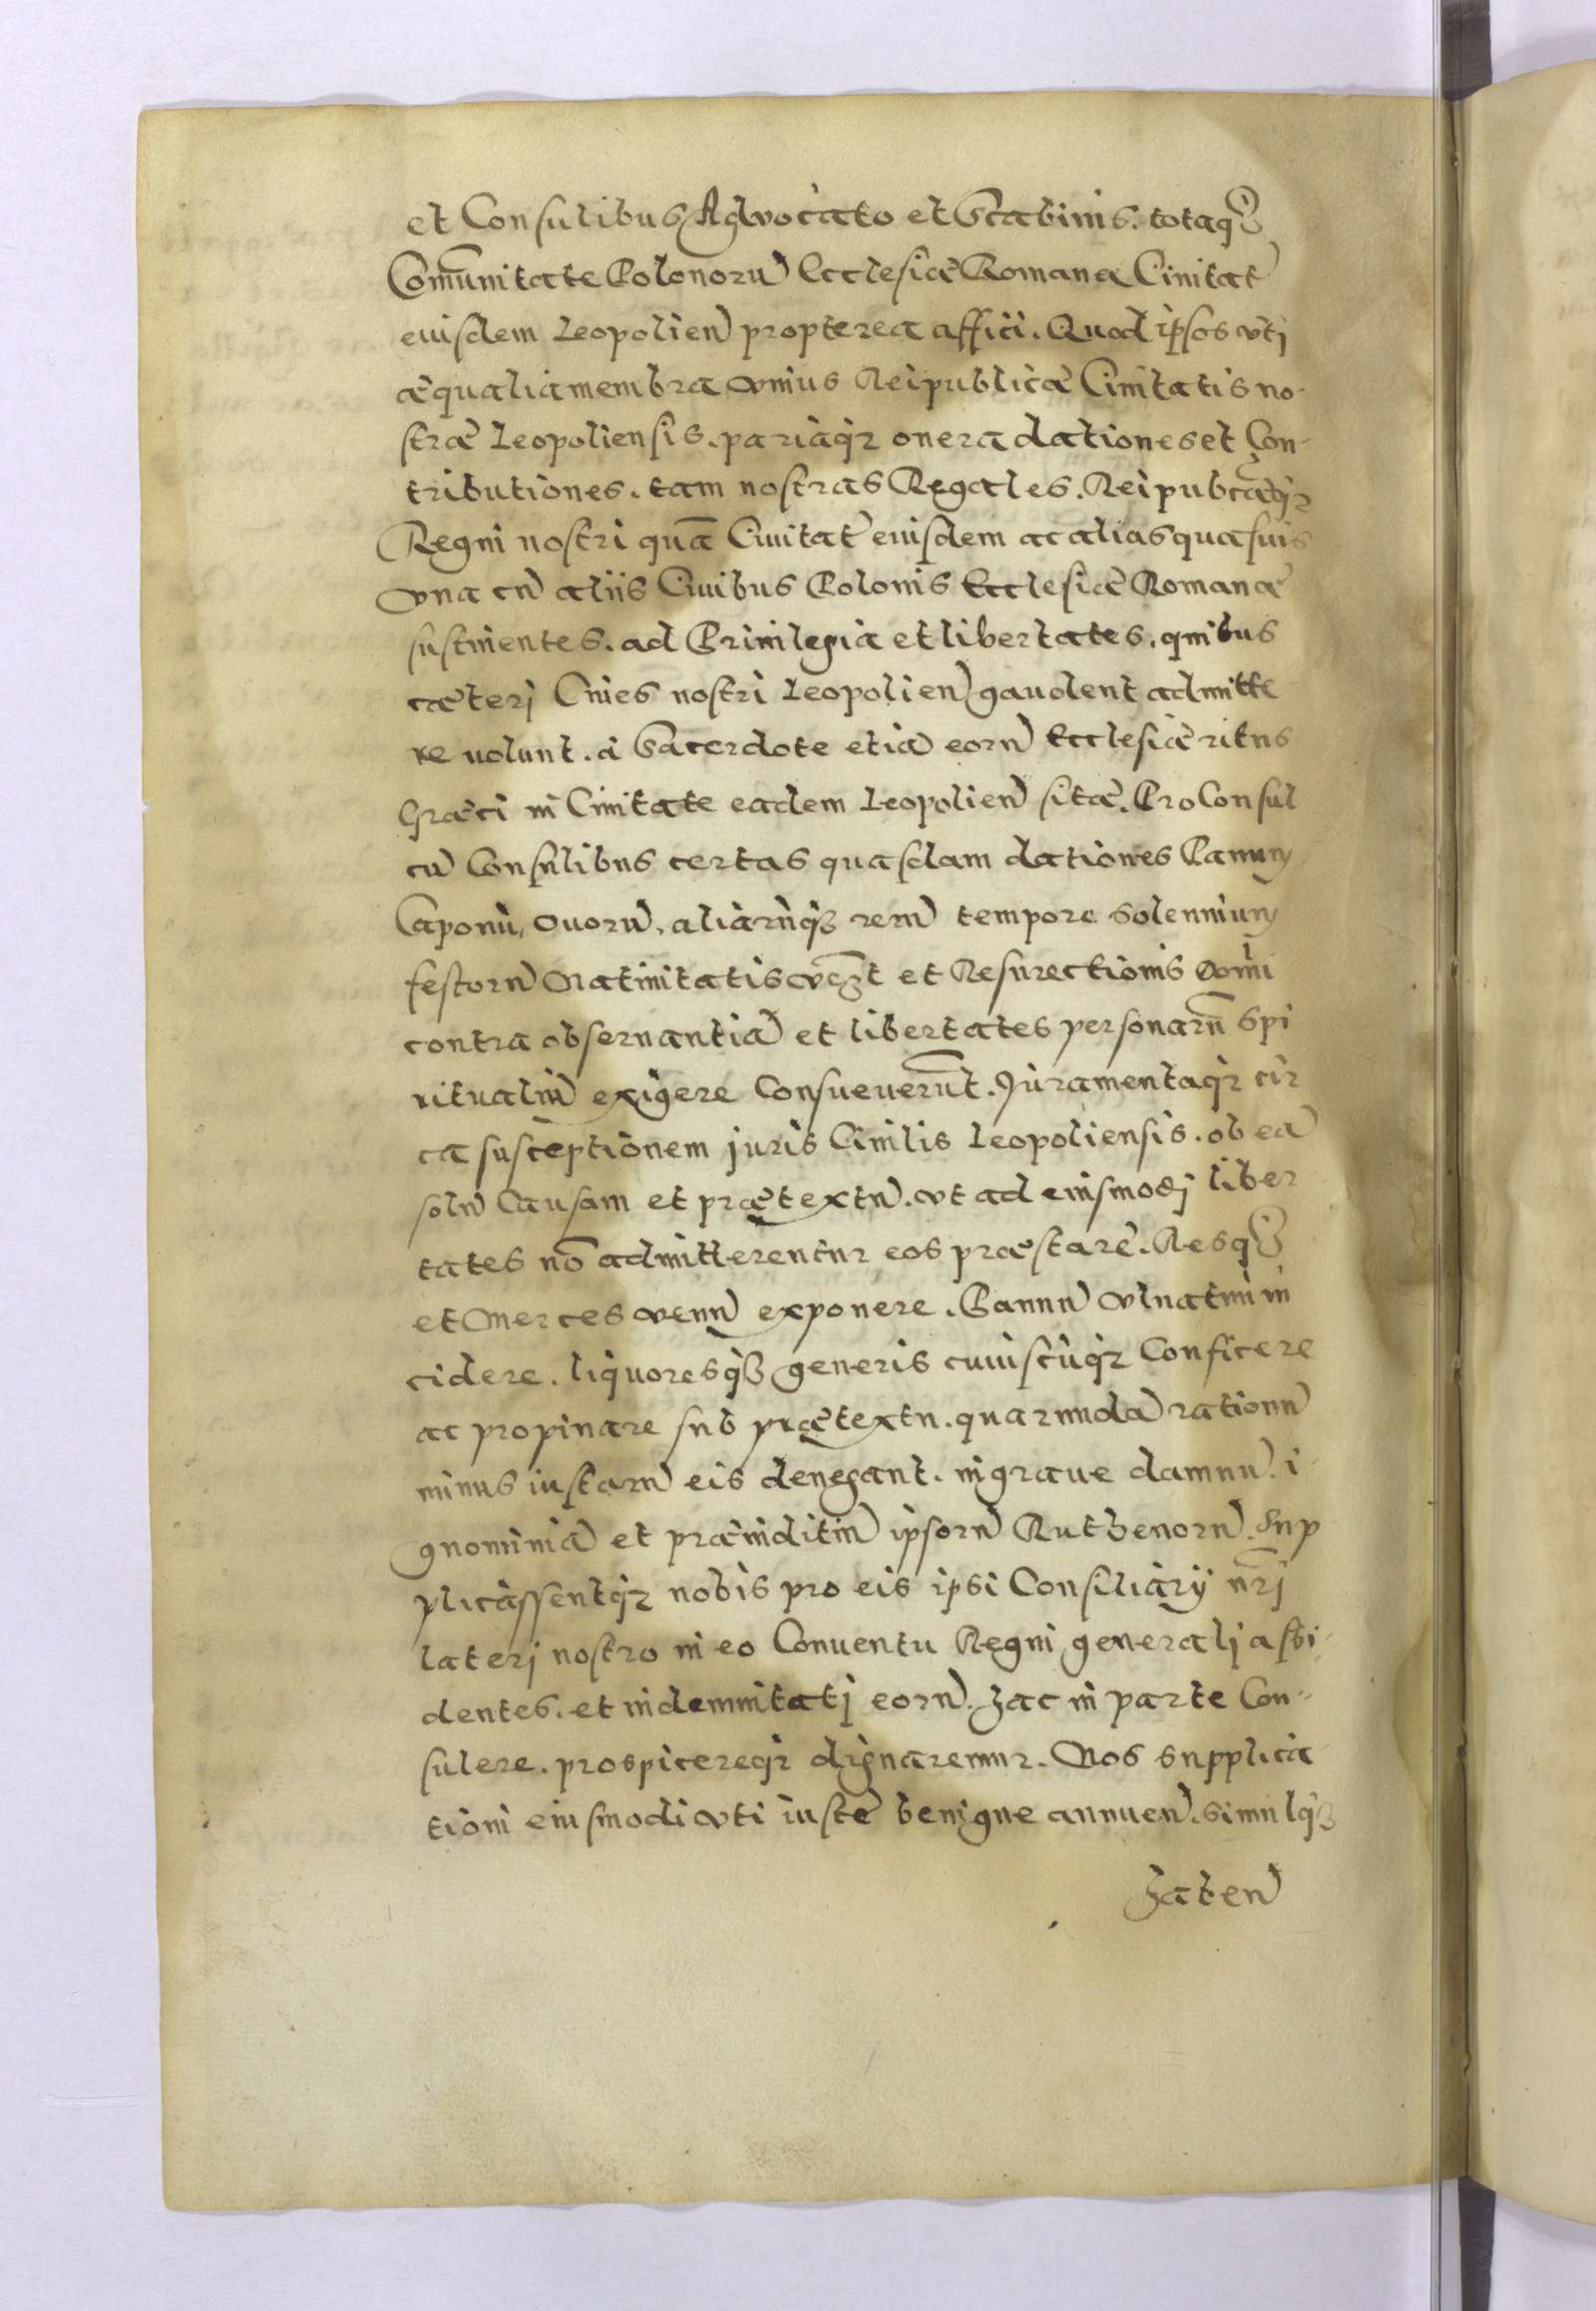 et Consulibus Advocato et Scabinis. totaq;
Com̄unitate Polonorū Ecclesiæ Romanæ Ciuitat̃
eiusdem Leopolien̄ propterea affici. Quod ipsos vti
æqualia membra vnius Reipublicæ Ciuitatis no-
stræ Leopoliensis. pariaq; onera dationes et Con-
tributiones. tam nostras Regales. Reipubcæq;
Regni nostri quā Ciuitat̃ eiusdem ac alias quasuis
vna cū aliis Ciuibus Polonis Ecclesiæ Romanæ
sustinentes. ad Priuilegia et libertates. quibus
cæterj Ciues nostri Leopolien̄ gaudent admitte
re nolunt. à Sacerdote etiā eorū Ecclesiæ ritus
Græci in Ciuitate eadem Leopolien̄ sitæ. ProConsul
cū Consulibus certas quasdam dationes Panum
Caponū, Ouorū, aliarūq; rerū tempore solennium
festorū Natiuitatis vꝫt et Resurectionis Domi
contra obseruantiā et libertates personarū Spi
ritualiū exigere Consueuerūnt. Juramentaq; cir
ca susceptionem juris Ciuilis Leopoliensis. ob eā
solū Causam et prætextū. vt ad eiusmodj liber
tates nō admitterentur eos præstare. Resq;
et Merces venū exponere. Pannū vlnatim in
cidere. liquoresq; generis cuiuscūq; Conficere
ac propinare sub prætextu. quarundā rationū
minus iustarū eis denegant. in graue damnū. i-
gnominiā et præiuditiū ipsorū Ruthenorū. Sup
plicassentq; nobis pro eis ipsi Consiliarÿ nr̄j
laterj nostro in eo Conuentu Regni generalj assi-
dentes. et indemnitatj eorū. hac in parte Con-
sulere. prospicereq; dignaremur. Nos supplica
tioni eiusmodi vti iustæ benigne annuen̄. simulq;
haben̄